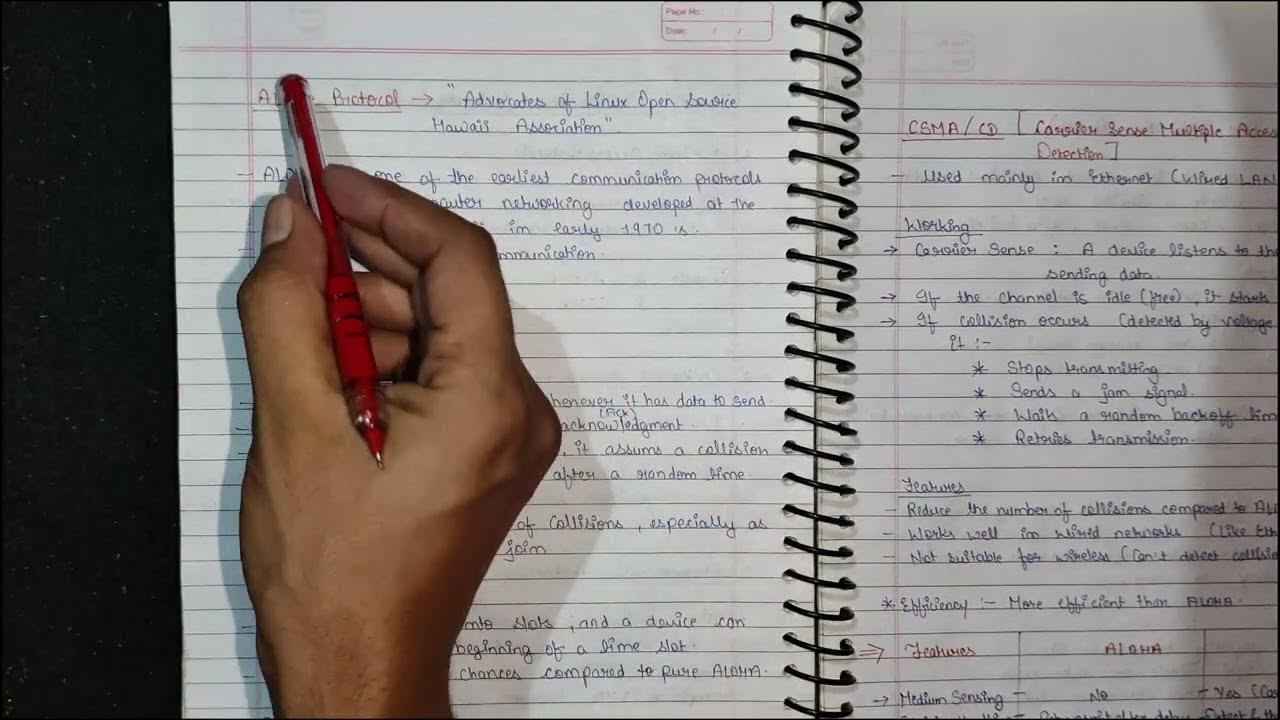 Page No.:
Date: / /
Protocol → "Advocates of Linux Open Source
Hawaii Association".
one of the earliest communication protocols
networking developed at the
in early 1970's.
whenever it has data to send.
(ACK)
acknowledgment.
, it assumes a collision
after a random time.
of collisions, especially as
join
into slots, and a device can
beginning of a time slot.
chances compared to pure ALOHA.
CSMA/CD [Carrier Sense Multiple
Detection]
- Used mainly in Ethernet (Wired LAN
Working
→ Carrier Sense : A device listens to the
sending data.
→ If the channel is idle (free), it starts
→ If collision occurs (detected by voltage
it :-
* Stops transmitting
* Sends a jam signal.
* Waits a random backoff time
* Retries transmission.
Features
- Reduce the number of collisions compared to
- Works well in wired networks (like
- Not suitable for wireless (Can't detect
* Efficiency :- More efficient than ALOHA.
⇒ Features ALOHA
→ Medium Sensing - No - Yes